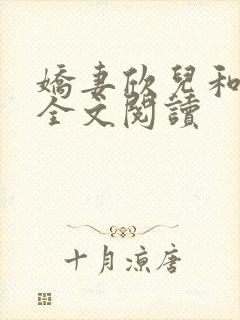 嬌妻欣兒和
全文閱讀
十月涼唐